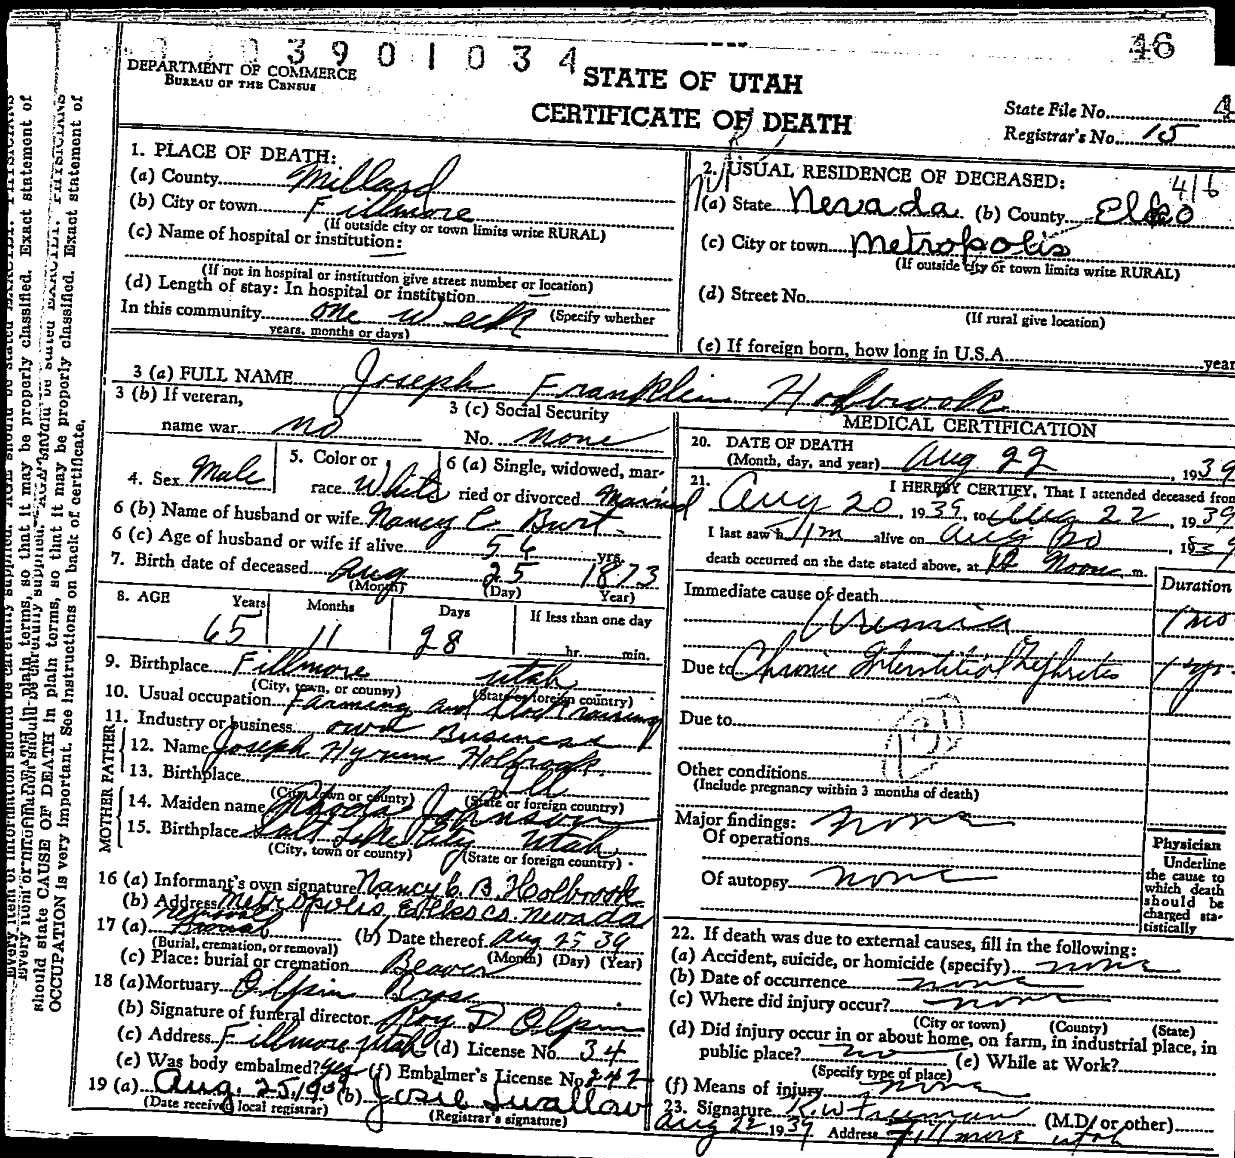 3901034
46
DEPARTMENT OF COMMERCE
BUREAU OF THE CENSUS
STATE OF UTAH
CERTIFICATE OF DEATH
State File No. 4
Registrar's No. 15
1. PLACE OF DEATH:
(a) County Millard
(b) City or town Fillmore
(If outside city or town limits write RURAL)
(c) Name of hospital or institution:
(If not in hospital or institution give street number or location)
(d) Length of stay: In hospital or institution
In this community one week (Specify whether
years, months or days)
2. USUAL RESIDENCE OF DECEASED:
(a) State Nevada (b) County Elko
(c) City or town Metropolis
(If outside city or town limits write RURAL)
(d) Street No.
(If rural give location)
(e) If foreign born, how long in U.S.A. year
3 (a) FULL NAME Joseph Franklin Holbrook
3 (b) If veteran,
name war no
3 (c) Social Security
No. none
4. Sex Male
5. Color or
race White
6 (a) Single, widowed, mar-
ried or divorced Married
6 (b) Name of husband or wife Nancy C. Burt
6 (c) Age of husband or wife if alive 54 yrs.
7. Birth date of deceased Aug 25 1873
(Month) (Day) Year)
8. AGE Years Months Days If less than one day
65 11 28 hr. min.
9. Birthplace Fillmore Utah
(City, town, or county) (State or foreign country)
10. Usual occupation Farming and
11. Industry or business own Business
FATHER
12. Name Joseph Hyrum Holbrook
13. Birthplace Ill
(City, town or county) (State or foreign country)
MOTHER
14. Maiden name Rhoda Johnson
15. Birthplace Salt Lake City Utah
(City, town or county) (State or foreign country)
16 (a) Informant's own signature Nancy C. B. Holbrook
(b) Address Metropolis, Elko co. Nevada
17 (a) Removal Burial (b) Date thereof Aug 25 39
(Burial, cremation, or removal) (Month) (Day) (Year)
(c) Place: burial or cremation Beaver
18 (a) Mortuary Olpin Bros.
(b) Signature of funeral director Roy D Olpin
(c) Address Fillmore Utah (d) License No. 34
(e) Was body embalmed? yes (f) Embalmer's License No. 247
19 (a) Aug. 25, 1939 (b) Josie Swallow
(Date received local registrar) (Registrar's signature)
MEDICAL CERTIFICATION
20. DATE OF DEATH
(Month, day, and year) Aug 22, 1939
21. I HEREBY CERTIFY, That I attended deceased from
Aug 20, 1939, to Aug 22, 1939
I last saw him alive on Aug 20, 1939
death occurred on the date stated above, at 12 Noon m.
Immediate cause of death Duration
Uremia 1 mo
Due to Chronic Interstitial Nephrites 1 yr.
Due to
Other conditions
(Include pregnancy within 3 months of death)
Major findings: none
Of operations
Of autopsy none
Physician
Underline
the cause to
which death
should be
charged sta-
tistically
22. If death was due to external causes, fill in the following:
(a) Accident, suicide, or homicide (specify) none
(b) Date of occurrence none
(c) Where did injury occur? none
(City or town) (County) (State)
(d) Did injury occur in or about home, on farm, in industrial place, in
public place? no (e) While at Work?
(Specify type of place)
(f) Means of injury none
23. Signature K. W. Freeman (M.D. or other)
Aug 22 1939 Address Fillmore Utah
should state CAUSE OF DEATH in plain terms, so that it may be properly classified. Exact statement of
OCCUPATION is very important. See instructions on back of certificate.